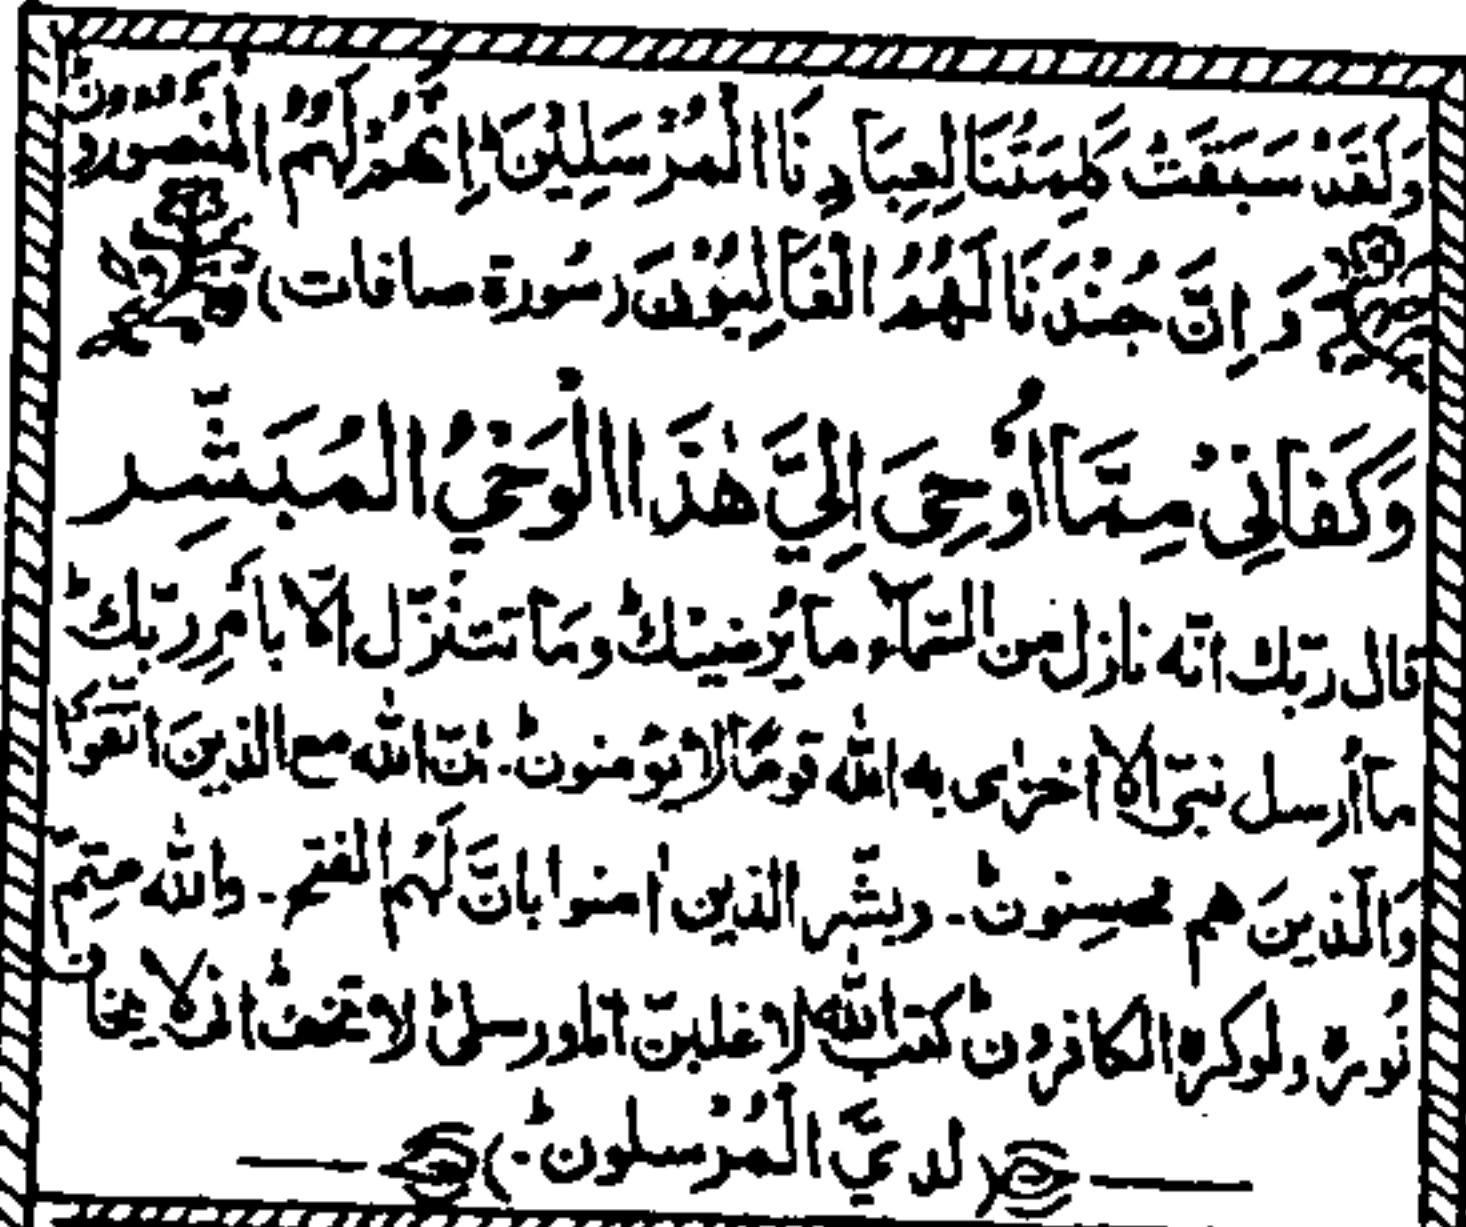 وَلَقَدْ سَبَقَتْ كَلِمَتُنَا لِعِبَادِنَا الْمُرْسَلِيْنَ ؕ اِنَّهُمْ لَهُمُ الْمَنْصُوْرُوْنَ ؕ
وَ اِنَّ جُنْدَنَا لَهُمُ الْغَالِبُوْنَ (سُورة صافات)
وَكَفَانِيْ مِمَّا اُوْحِيَ اِلَيَّ هٰذَا الْوَحْيُ الْمُبَشِّر
قال ربّك انّه نازل من السّمآء ما يُرْضيْك ؕ ومَا نتنزّل الّا بامْرِ ربّك ؕ
مآ اُرسل نبيّ الّا اخزٰى به اللّٰه قومًا لا يؤمنون ؕ۔ اِنّ اللّٰه مع الذينَ اتّقوْا
وَالّذينَ هم محسنون ؕ۔ وبشّر الذين اٰمنوا بانَّ لَهُم الفتح۔ واللّٰه متِمّ
نُوره ولوكره الكافرون ؕ كتب اللّٰه لاغلبنّ انا ورسلى ؕ لا تخفْ ؕ انى لا يخاف
(لديَّ الْمُرْسلون ؕ۔)